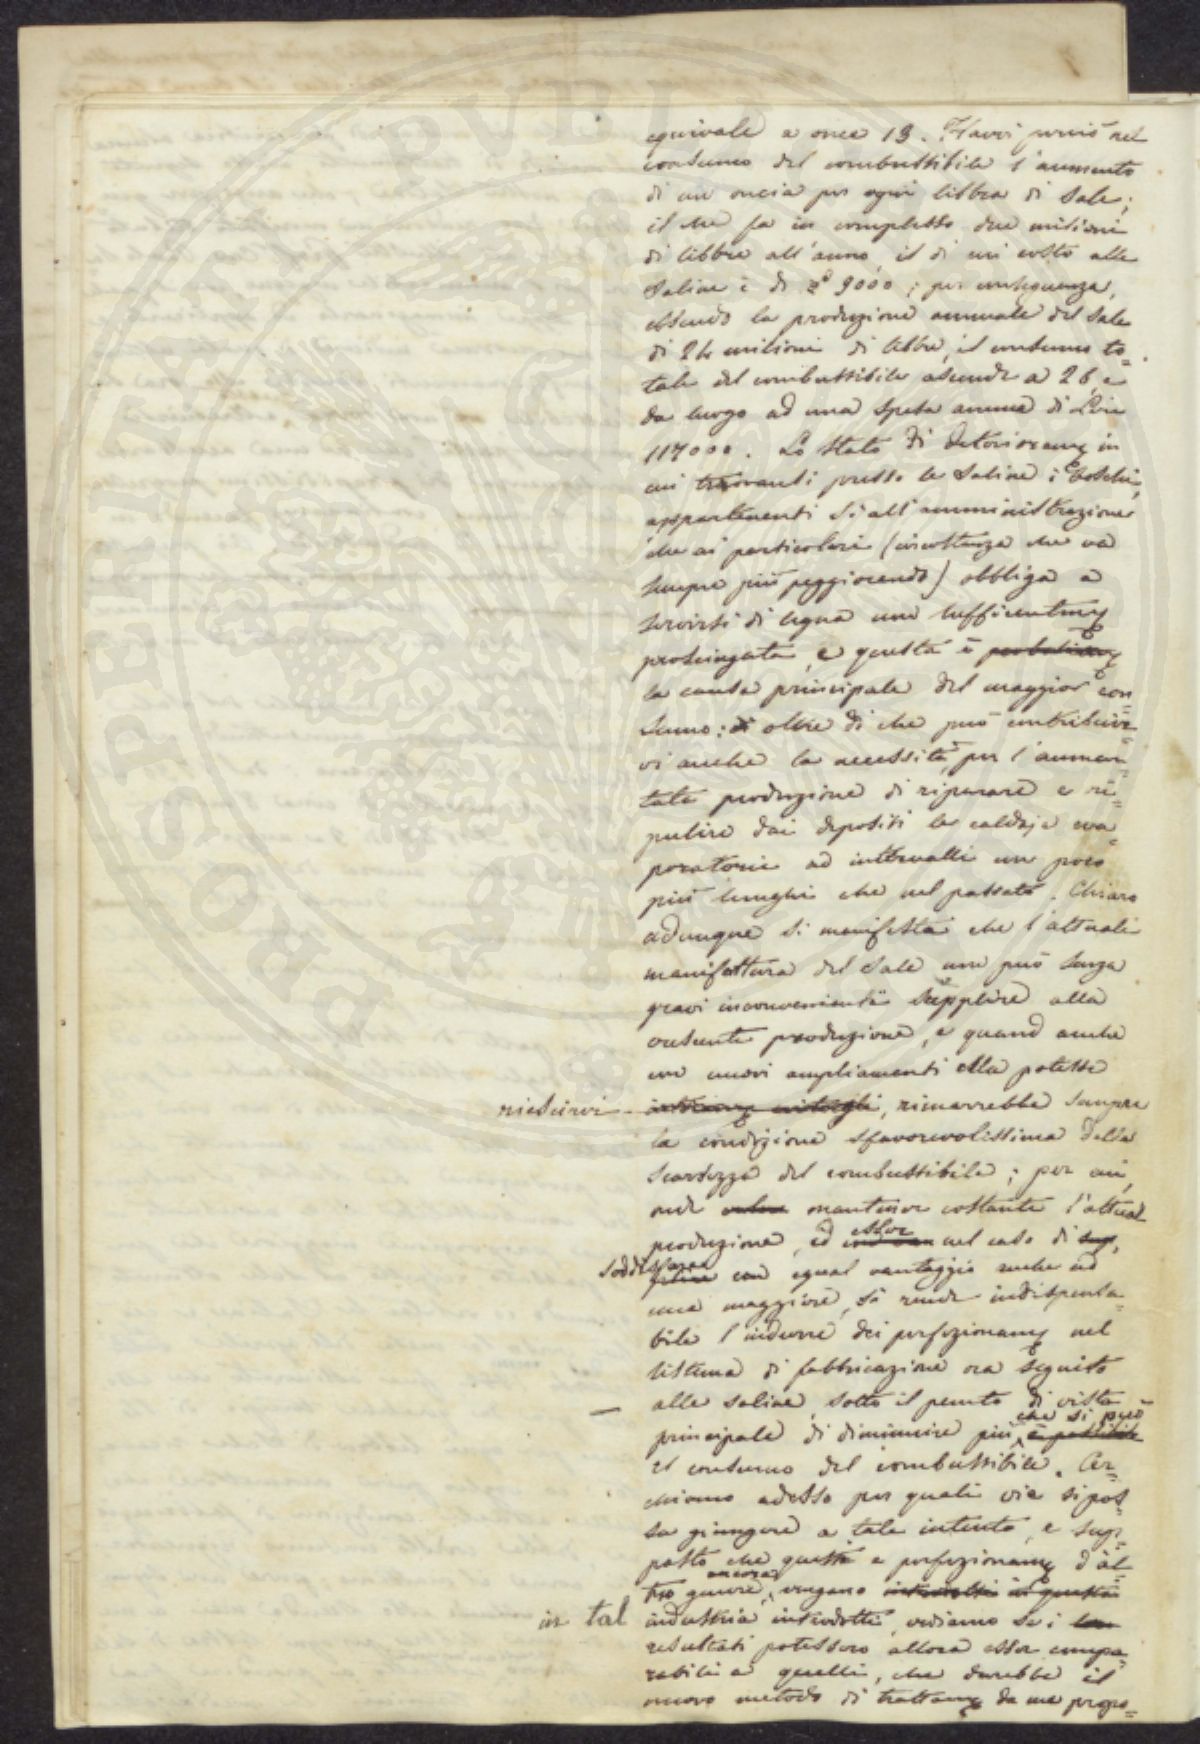 equivale a once 13. Havvi perciò nel
consumo del combustibile l'aumento
di un oncia per ogni libbra di sale;
il che fa in complesso due milioni
di libbre all'anno, il di cui costo alle
Saline è di 9000; per conseguenza,
essendo la produzione annuale del sale
di 24 milioni di libbre, il consumo to=
tale del combustibile ascende a 26, e
da luogo ad una spesa annua di Lire
117000. Lo stato di in
cui trovansi presso le Saline i boschi,
appartenenti sì all'amministrazione
che ai particolari (circostanza che va
sempre più peggiorando) obbliga a
servirsi di legna non sufficientem
prosciugata, e questa è probabilmen
la causa principale del maggior con
sumo: di oltre di che può contribuir=
vi anche la necessità, per l'aumen=
tata produzione di riparare e ri=
pulire dai depositi le caldaje eva=
poratorie ad intervalli un poco
più lunghi che nel passato. Chiaro
adunque si manifesta che l'attuale
manifattura del Sale non può senza
gravi inconvenienti supplire alla
crescente produzione, e quand anche
con nuovi ampliamenti ella potesse
riescirvi, rimarrebbe sempre
la condizione sfavorevolissima della
scarsezza del combustibile; per cui,
onde mantener costante l'attual
produzione, ed esser nel caso di sup,
soddisfare con egual vantaggio anche ad
una maggiore, si rende indispensa=
bile l'indurre dei perfezionam nel
sistema di fabbricazione ora seguito
alle saline, sotto il punto di vista
principale di diminuire più che si può è possibile
il consumo del combustibile. Cer=
chiamo adesso per quali vie si pos=
sa giungere a tale intento, e sup=
posto che questi e perfezionam d'al=
tro genere, ancora vengano introdotti in questa
in tal industria introdotti, vediamo se i
resultati potessero allora esser compa=
rabili a quelli, che darebbe il
nuovo metodo di trattam da me propo=